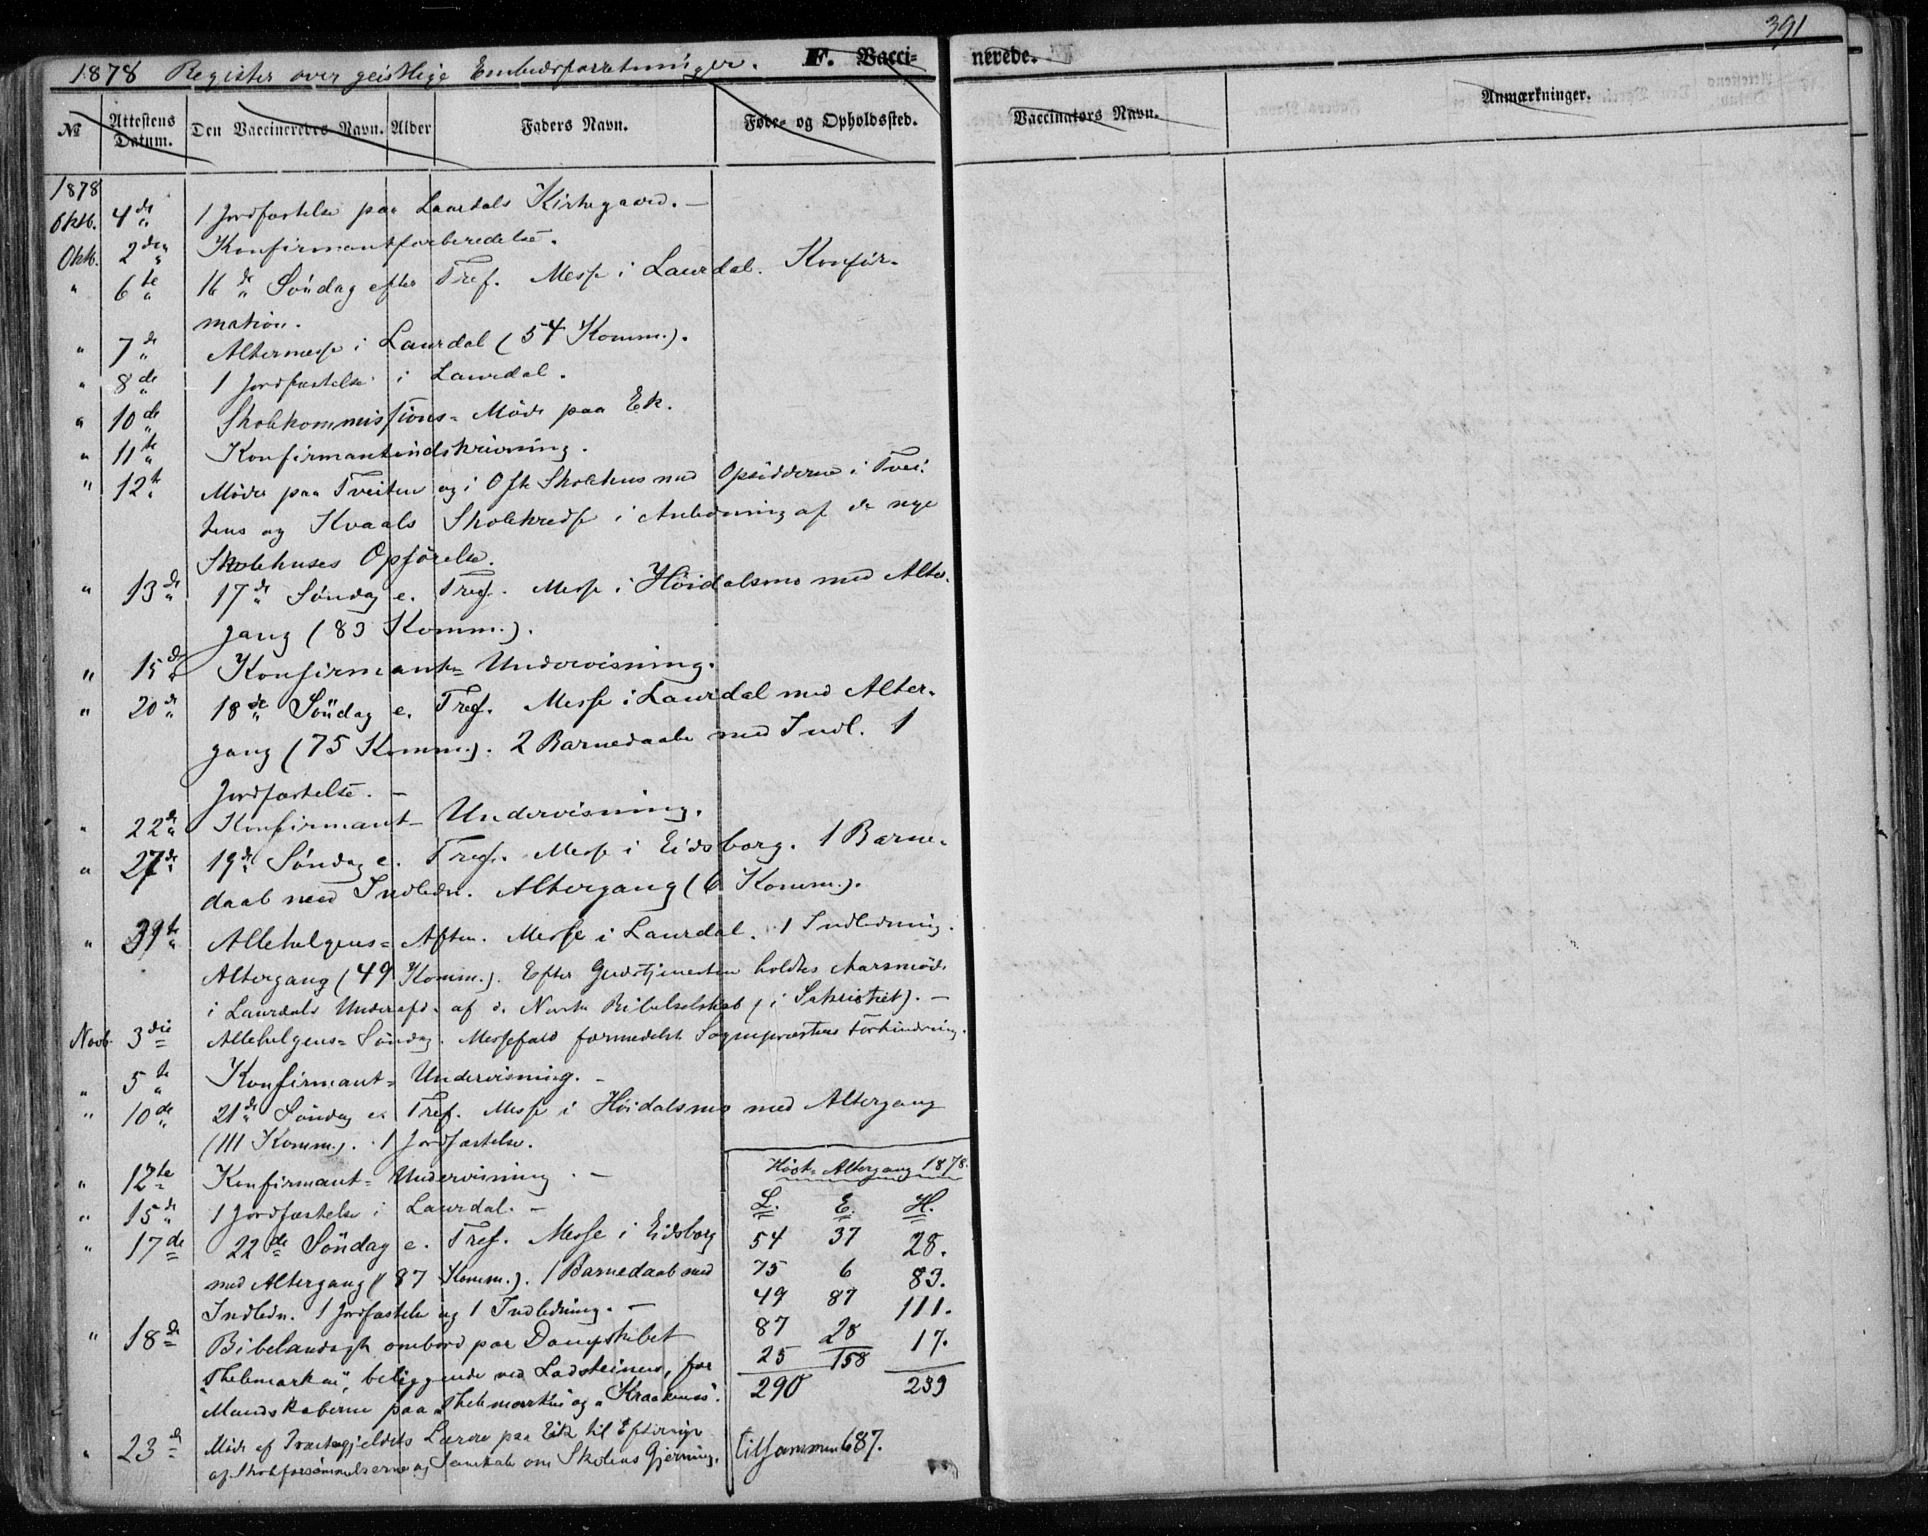 391
1878 Register over geistlige Embedsforretninger. F. Vacci-
nerede.
№ Attestens Datum. Den Vaccineredes Navn. Alder Faders Navn. Føde- og Opholdssted. Vaccinators Navn. Anmærkninger.
1878
Oktb. 4de 1 Jordfæstelse paa Laurdals Kirkegaard. —
Oktb. 2den Konfirmantforberedelse.
" 6te 16de Søndag efter Tref. Messe i Laurdal. Konfir-
mation.
" 7de Altermesse i Laurdal (54 Komm.).
" 8de 1 Jordfæstelse i Laurdal.
" 10de Skolekommissions- Møde paa Ek.
" 11te Konfirmantindskrivning.
" 12te Møder paa Tveiten og i Ofte Skolehus med Opsidderne i Tvei-
tens og Kvaals Skolekredse i Anledning af de nye
Skolehuses Opførelse.
" 13de 17de Søndag e. Tref. Messe i Høidalsmo med Alter-
gang (83 Komm.).
" 15de Konfirmant- Undervisning.
" 20de 18de Søndag e. Tref. Messe i Laurdal med Alter-
gang (75 Komm.). 2 Barnedaabe med Indl. 1
Jordfæstelse. —
" 22de Konfirmant- Undervisning.
" 27de 19de Søndag e. Tref. Messe i Eidsborg. 1 Barne-
daab med Indledn. Altergang (6 Komm.).
" 31te Allehelgens- Aften. Messe i Laurdal. 1 Indledning.
Altergang (49 Komm.). Efter Gudstjenesten holdtes Aarsmøde
i Laurdals Underafd. af d. Norske Bibelselskab (i Sakristiet). —
Novb. 3die Allehelgens- Søndag. Messefald formedelst Sognepræstens Forhindring.
" 5te Konfirmant- Undervisning. —
" 10de 21de Søndag e. Tref. Messe i Høidalsmo med Altergang
(111 Komm.). 1 Jordfæstelse.
" 12te Konfirmant- Undervisning. —
" 15de 1 Jordfæstelse i Laurdal. —
" 17de 22de Søndag e. Tref. Messe i Eidsborg
med Altergang (87 Komm.). 1 Barnedaab med
Indledn. 1 Jordfæstelse og 1 Indledning. —
" 18de Bibelandagt ombord paa Dampskibet
"Thelemarken", beliggende ved Ladsteinen, for
Mandskaberne paa "Thelemarken" og "Kraakenes".
" 23de Møde af Præstegjeldets Lærere paa Eik til Eftersyn
af Skoleforsømmelserne og Samtale om Skolens Gjerning.
Høst- Altergang 1878.
L. E. H.
54 37 28.
75 6 83.
49 87 111.
87 28 17.
25 158
290 239
tilsammen 687.